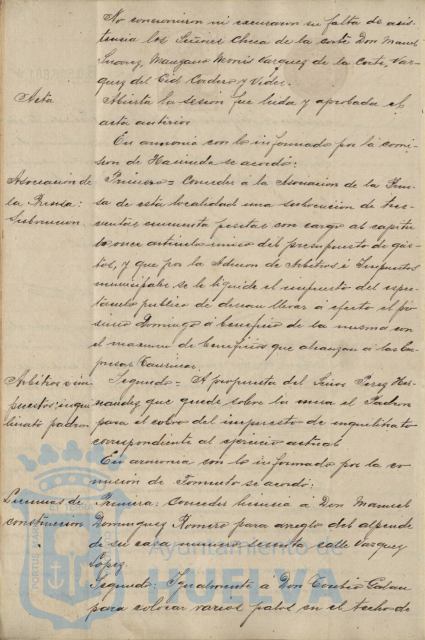 No concurrieron ni excusaron su falta de asis-
tencia los Señores Checa de la Corte Don Manuel
Suarez, Manzano Vazquez de la Corte, Vaz-
quez del Cid Cordero y Vides.
Acta
Abierta la sesión fue leida y aprobada el
acta anterior
En armonia con lo informado por la comi-
sion de Hacienda se acordó:
Asociacion de
la Prensa:
Subvencion.
Primero = Conceder á la Asociacion de la Pren-
sa de esta localidad una subvencion de tres-
cientas cincuenta pesetas con cargo al capitu-
lo once articulo unico del presupuesto de gas-
tos, y que por la Admon de Arbitrios é Impuestos
municipales se le liquide el impuesto del espec-
taculo publico que desean llevar á efecto el pró-
ximo Domingo á beneficio de la misma con
el maximum de beneficios que alcanzan á las Em-
presas Taurinas.
Arbitrios é im-
puestos: inqui-
linato padron
Segundo = A propuesta del Señor Perez Her-
nandez que quede sobre la mesa el Padron
para el cobro del impuesto de inquilinato
correspondiente al ejercicio actual
En armonia con lo informado por la co-
mision de Fomento se acordó:
Licencias de
construccion
Primera: Conceder licencia á Don Manuel
Dominguez Romero para arreglo del
de su casa numero sesenta calle Vazquez
Lopez.
Segundo: Igualmente á Don Eusebio Galan
para colocar varios palos en el techo de
Ayuntamiento de
HUELVA